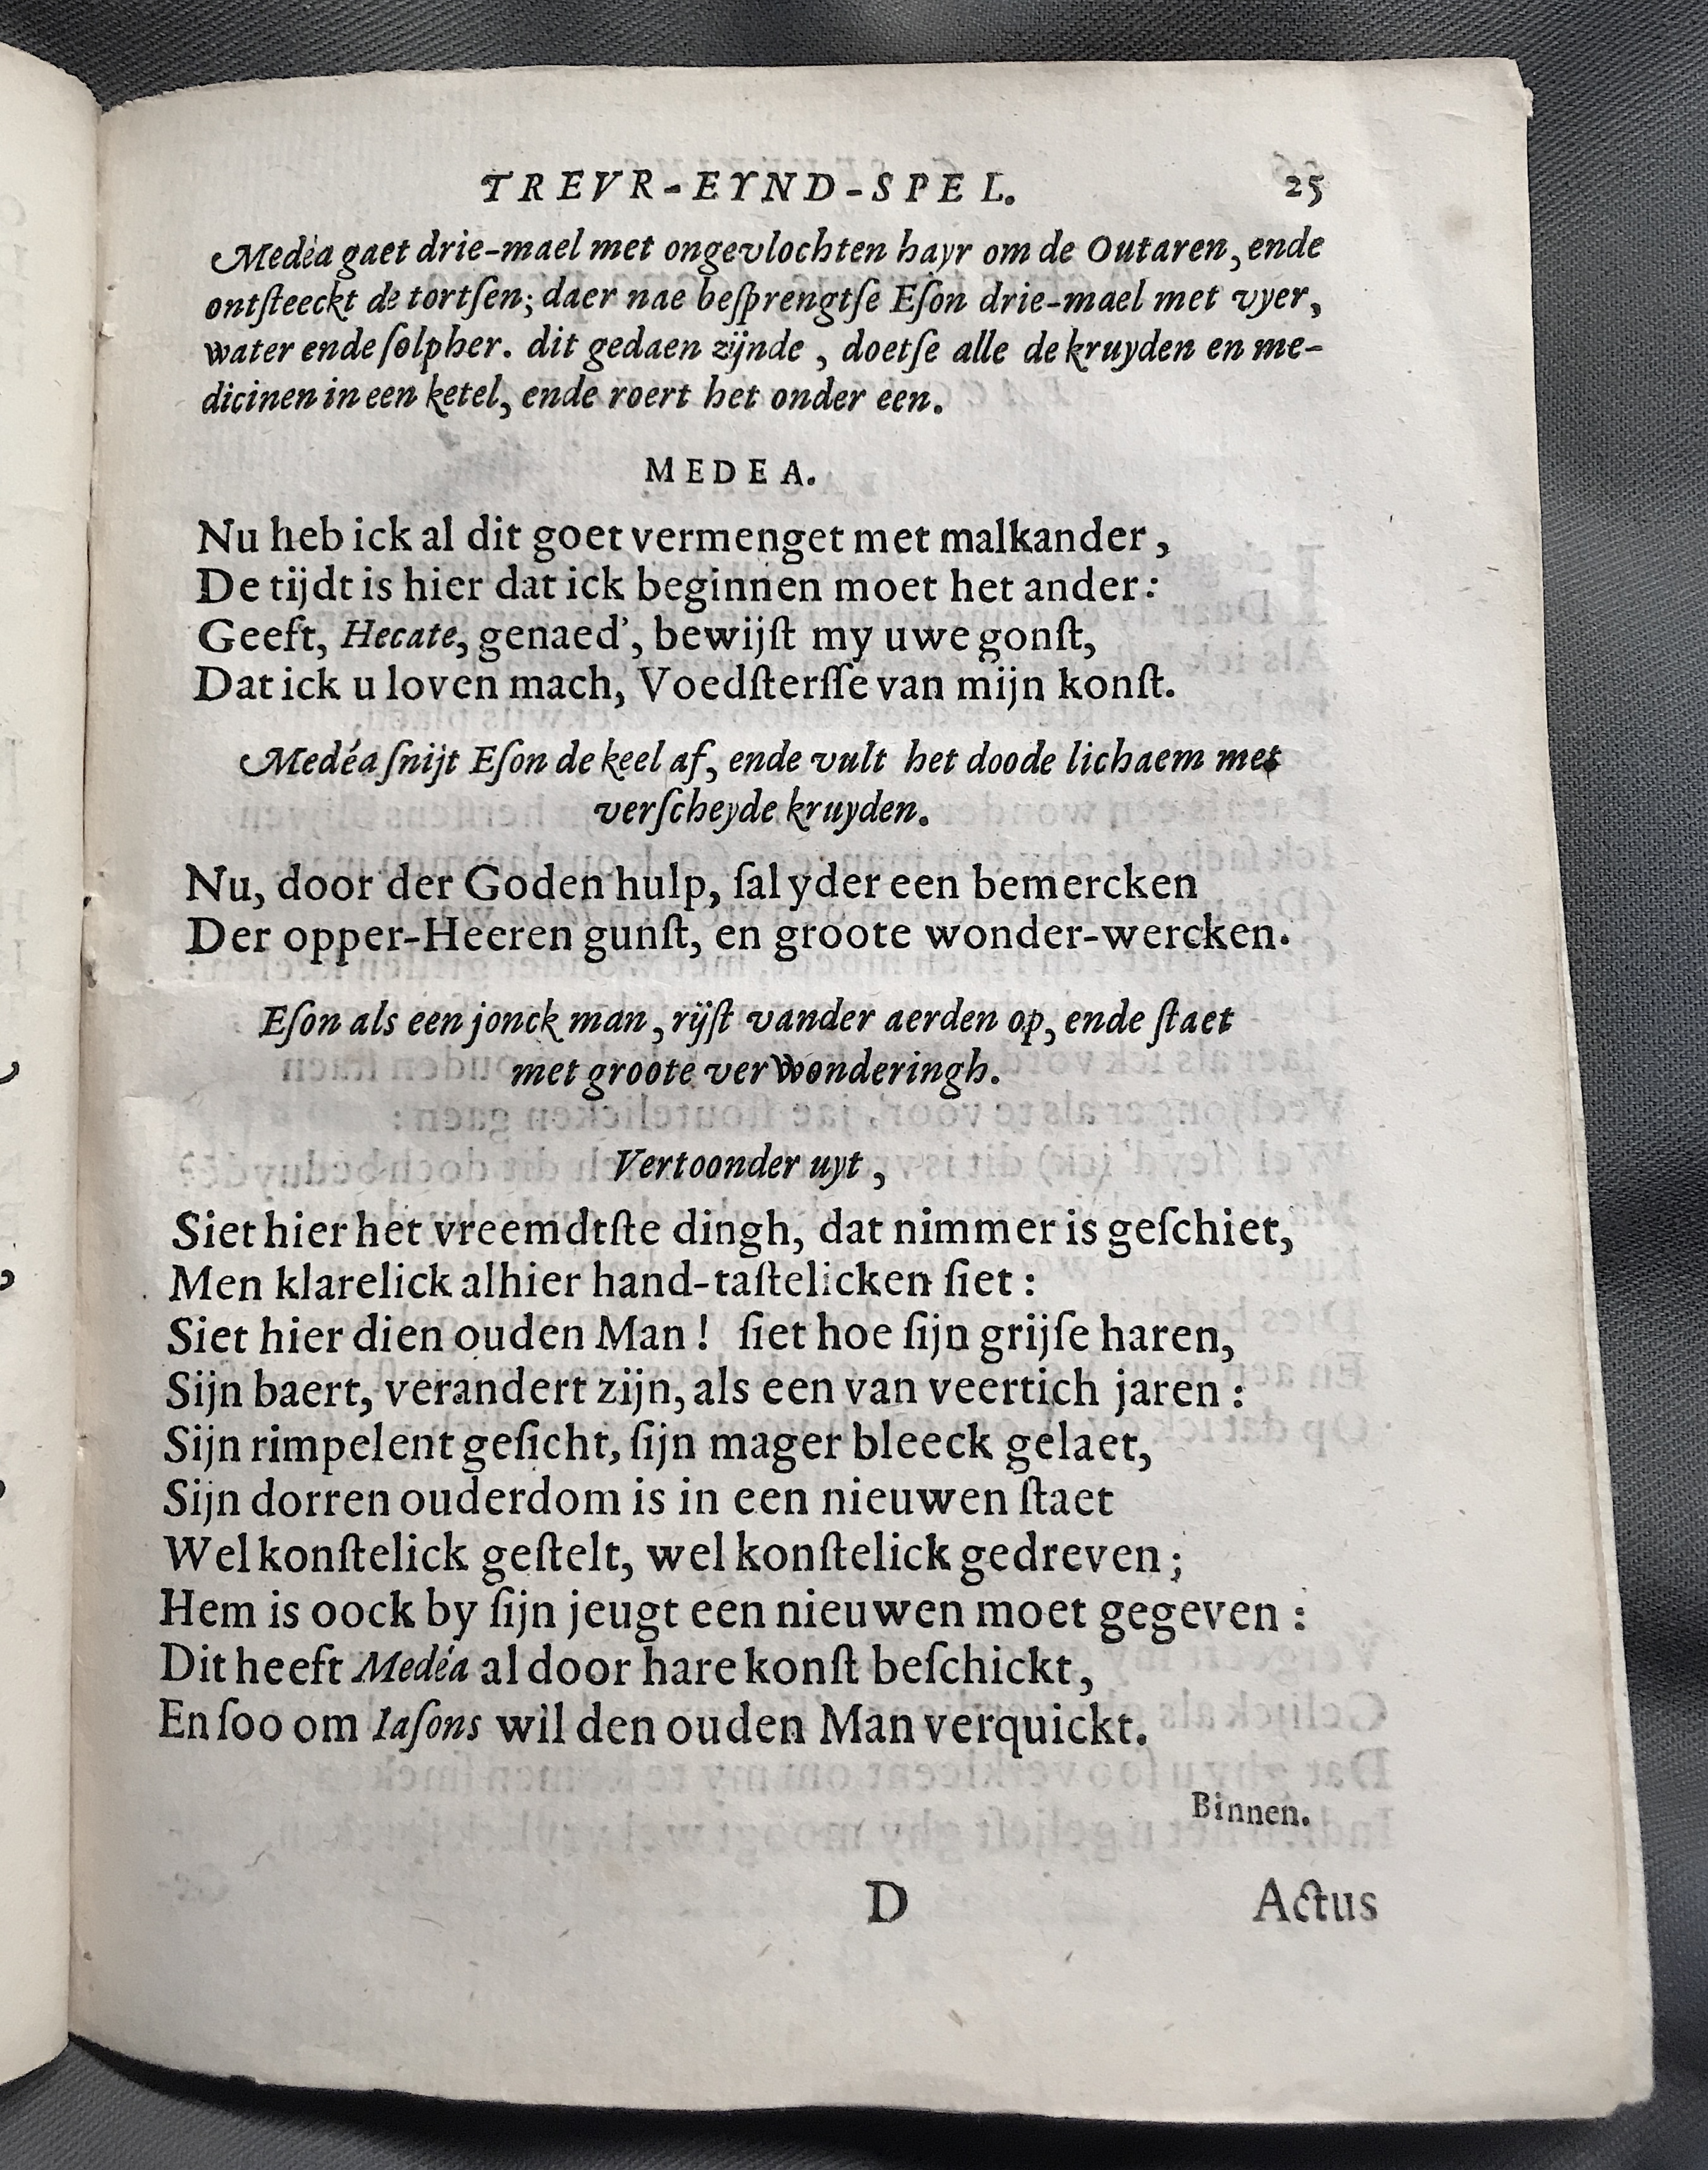 TREVR-EYND-SPEL. 25
Medèa gaet drie-mael met ongevlochten hayr om de Outaren, ende
ontſteeckt de tortſen; daer nae beſprengtſe Eſon drie-mael met vyer,
water ende ſolpher. dit gedaen zijnde, doetſe alle de kruyden en me-
dicinen in een ketel, ende roert het onder een.
MEDEA.
Nu heb ick al dit goet vermenget met malkander,
De tijdt is hier dat ick beginnen moet het ander:
Geeft, Hecate, genaed', bewijſt my uwe gonſt,
Dat ick u loven mach, Voedſterſſe van mijn konſt.
Medéa ſnijt Eſon de keel af, ende vult het doode lichaem met
verſcheyde kruyden.
Nu, door der Goden hulp, ſal yder een bemercken
Der opper-Heeren gunſt, en groote wonder-wercken.
Eſon als een jonck man, rijſt vander aerden op, ende ſtaet
met groote verwonderingh.
Vertoonder uyt,
Siet hier het vreemdtſte dingh, dat nimmer is geſchiet,
Men klarelick alhier hand-taſtelicken ſiet:
Siet hier dien ouden Man! ſiet hoe ſijn grijſe haren,
Sijn baert, verandert zijn, als een van veertich jaren:
Sijn rimpelent geſicht, ſijn mager bleeck gelaet,
Sijn dorren ouderdom is in een nieuwen ſtaet
Wel konſtelick geſtelt, wel konſtelick gedreven;
Hem is oock by ſijn jeugt een nieuwen moet gegeven:
Dit heeft Medéa al door hare konſt beſchickt,
En ſoo om Iaſons wil den ouden Man verquickt.
Binnen.
D Actus